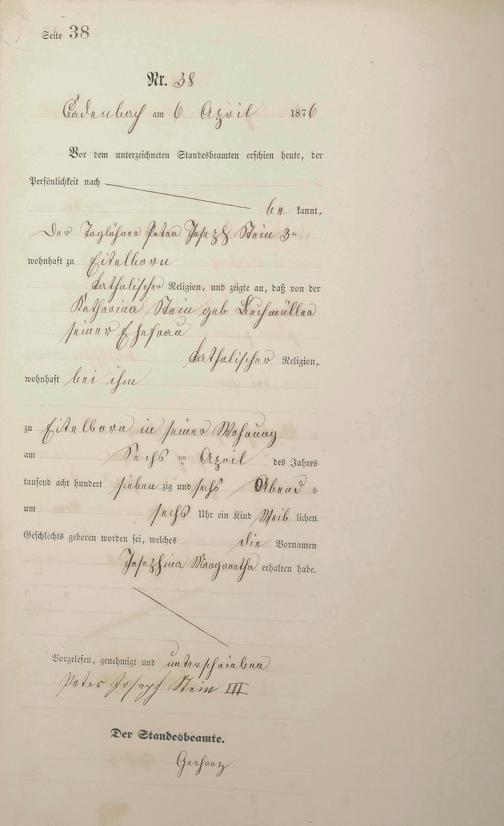 Seite 38
Nr. 38
Cadenbach am 6 April 1876
Vor dem unterzeichneten Standesbeamten erschien heute, der
Persönlichkeit nach
be kannt,
Der Taglöhner Peter Joseph Stein 3r
wohnhaft zu Eitelborn
katholischer Religion, und zeigte an, daß von der
Katharina Stein geb
seiner Ehefrau
katholischer Religion,
wohnhaft bei ihm
zu Eitelborn in seiner Wohnung
am Sechs ten April des Jahres
tausend acht hundert sieben zig und sechs Abends
um sechs Uhr ein Kind Weib lichen
Geschlechts geboren worden sei, welches die Vornamen
Josephina Margaretha erhalten habe.
Vorgelesen, genehmigt und unterschrieben
Peter Joseph Stein III
Der Standesbeamte.
Gerharz